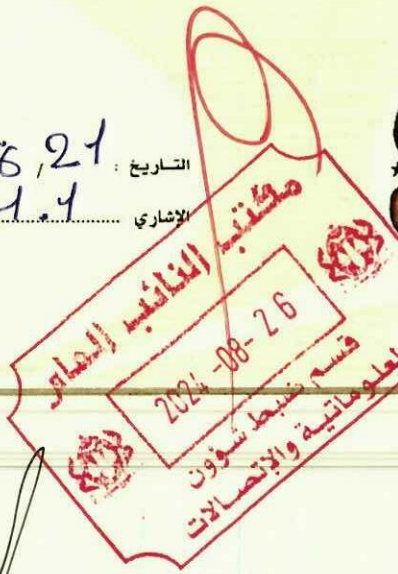 التاريخ : 6,21
الإشاري 1.1
مكتب النائب العام
2024-08-26
قسم ضبط شؤون
المعلوماتية والإتصالات